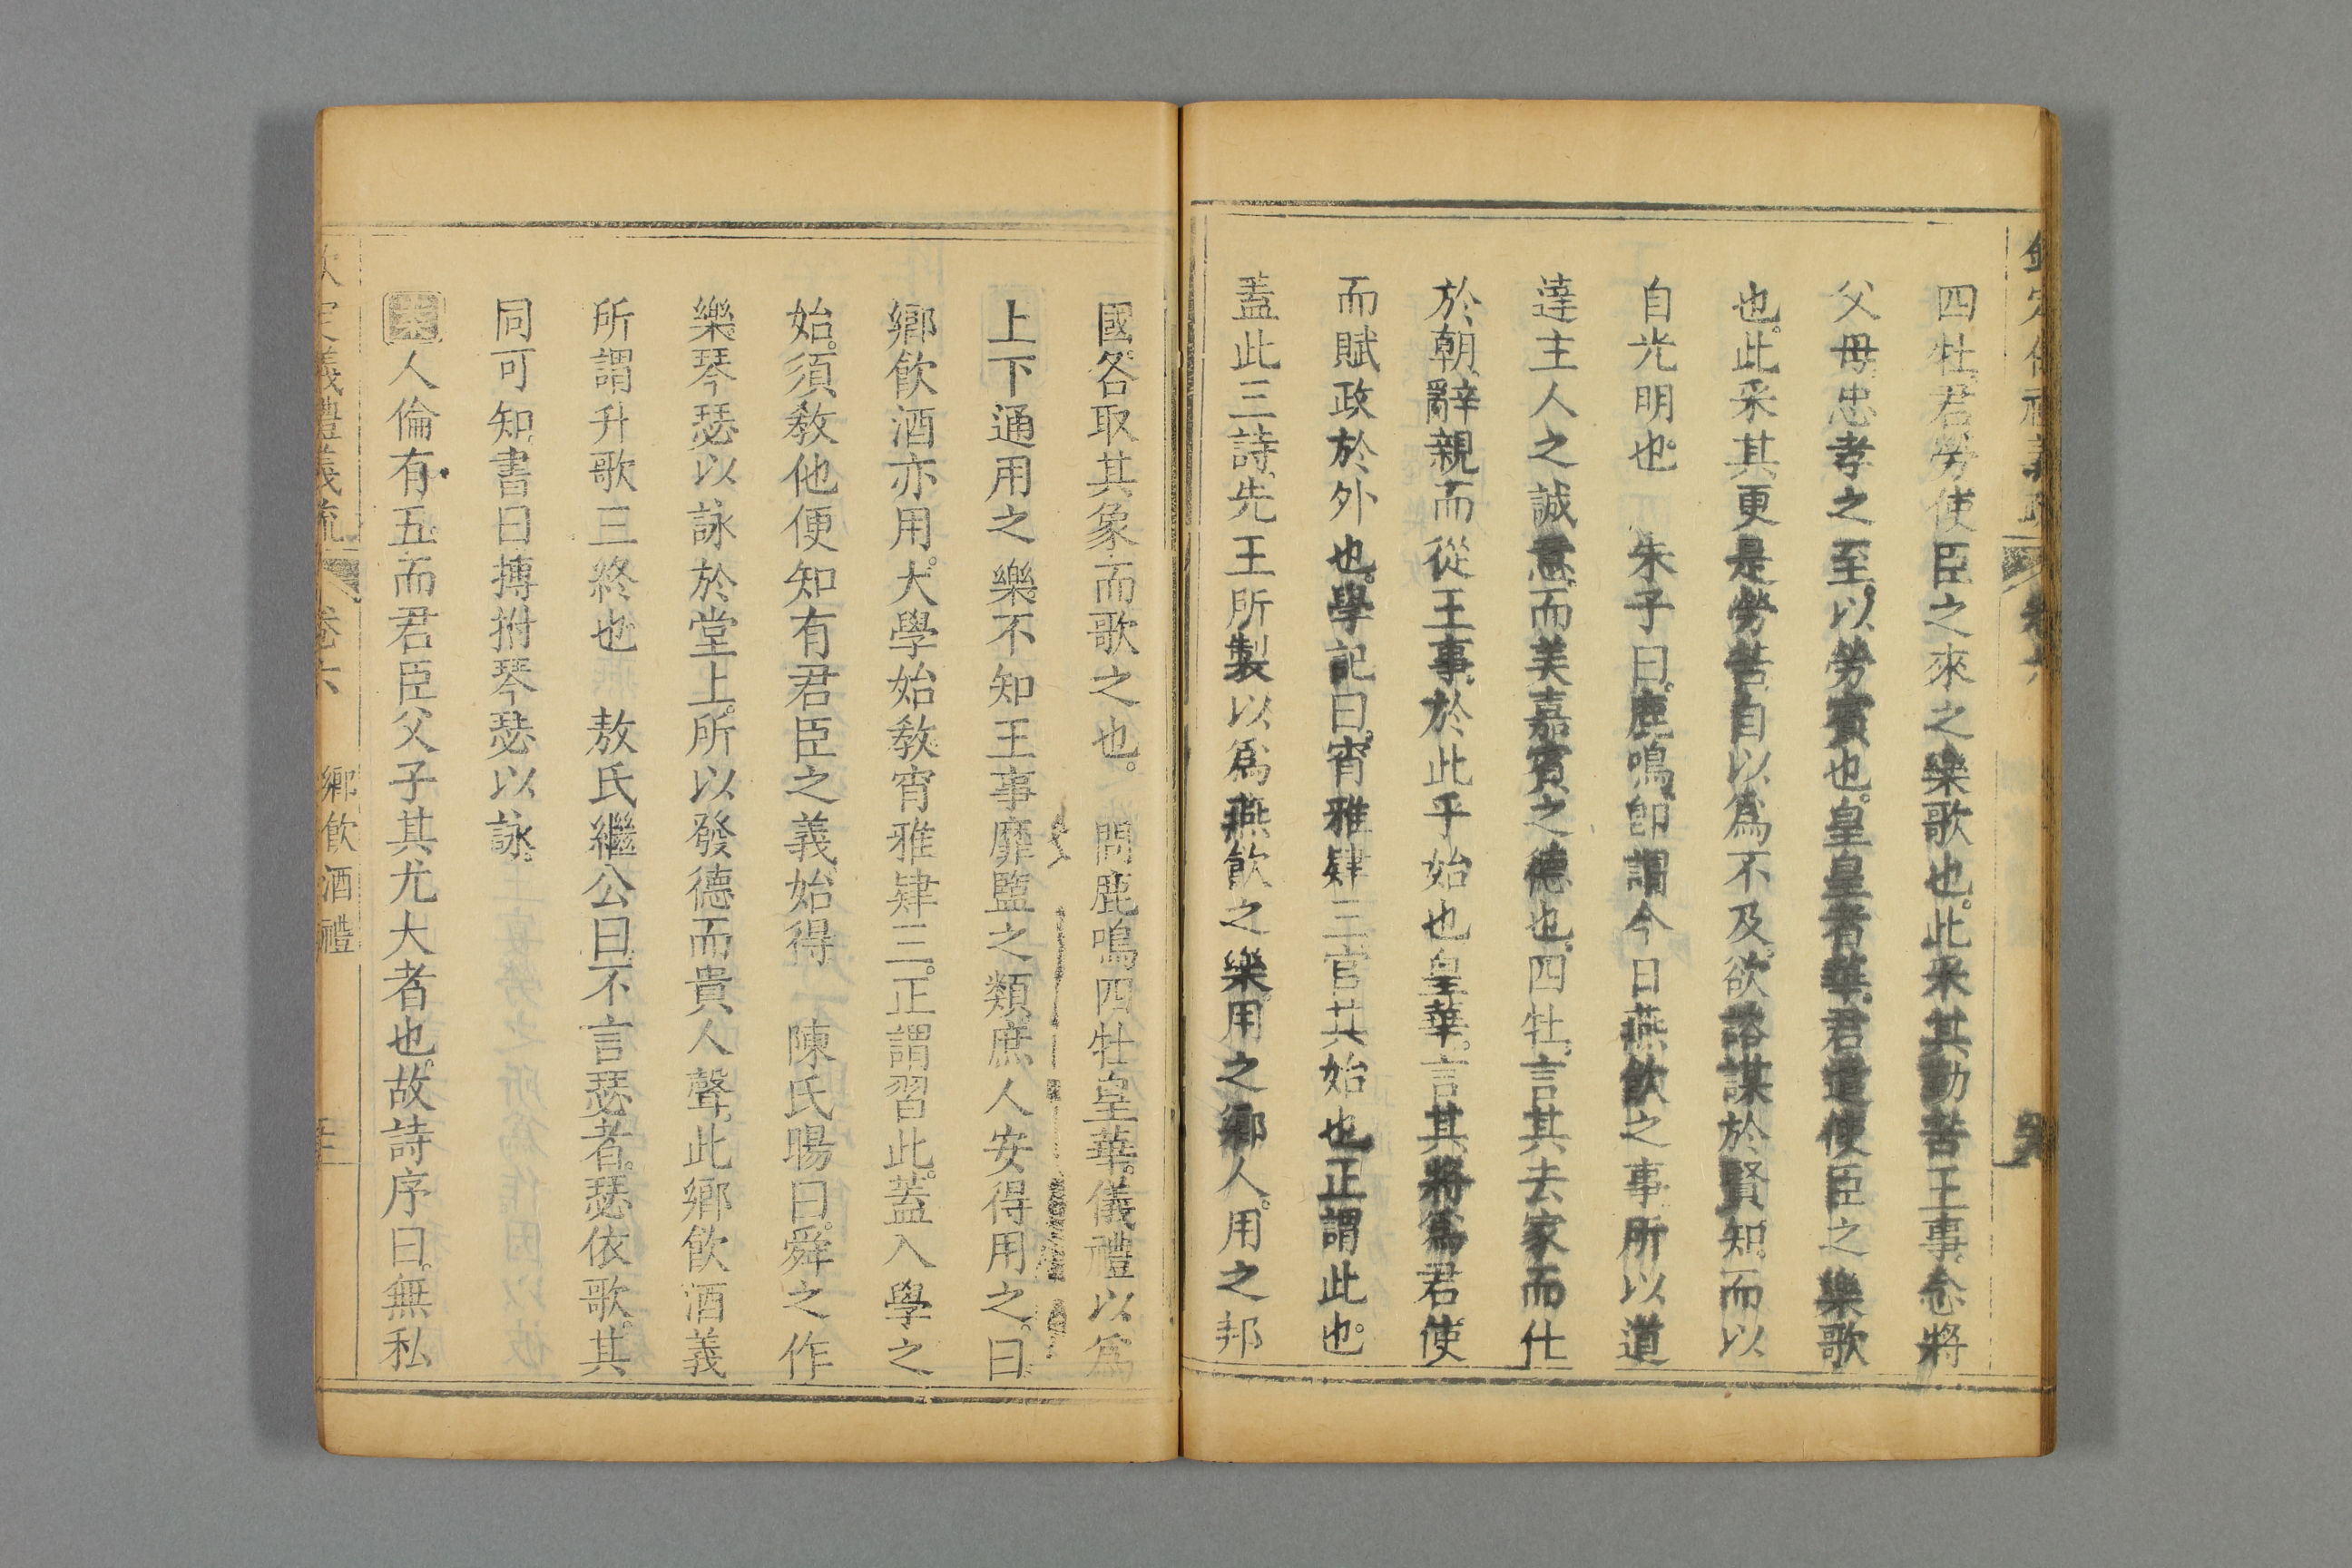 四牡君勞使臣之來之樂歌也。此采其勤苦王事念將
父母忠孝之至。以勞賓也。皇皇者華。君遣使臣之樂歌
也。此采其更是勞苦自以爲不及。欲諮謀於賢知。而以
自光明也 朱子曰。鹿鳴。卽謂今日燕飮之事所以道
達主人之誠意。而美嘉賓之德也。四牡。言其去家而仕
於朝。辭親而從王事。於此乎始也皇華。言其將爲君使
而賦政於外也。學記曰。宵雅肄三官其始也。正謂此也。
蓋此三詩。先王所製以爲燕飮之樂。用之鄉人。用之邦
國。各取其象而歌之也。 問鹿鳴四牡皇華。儀禮以爲
上下通用之樂不知王事靡盬之類庶人安得用之。曰
鄉飮酒亦用。大學始敎宵雅肄三。正謂習此。蓋入學之
始。須敎他便知有君臣之義。始得 陳氏暘曰。舜之作
樂琴瑟以詠於堂上。所以發德而貴人聲。此鄉飮酒義
所謂升歌三終也 敖氏繼公曰。不言瑟者。瑟依歌。其
同可知。書曰搏拊琴瑟以詠。
案人倫有五。而君臣父子其尤大者也。故詩序曰。無私
欽定儀禮義疏 卷六 鄉飮酒禮